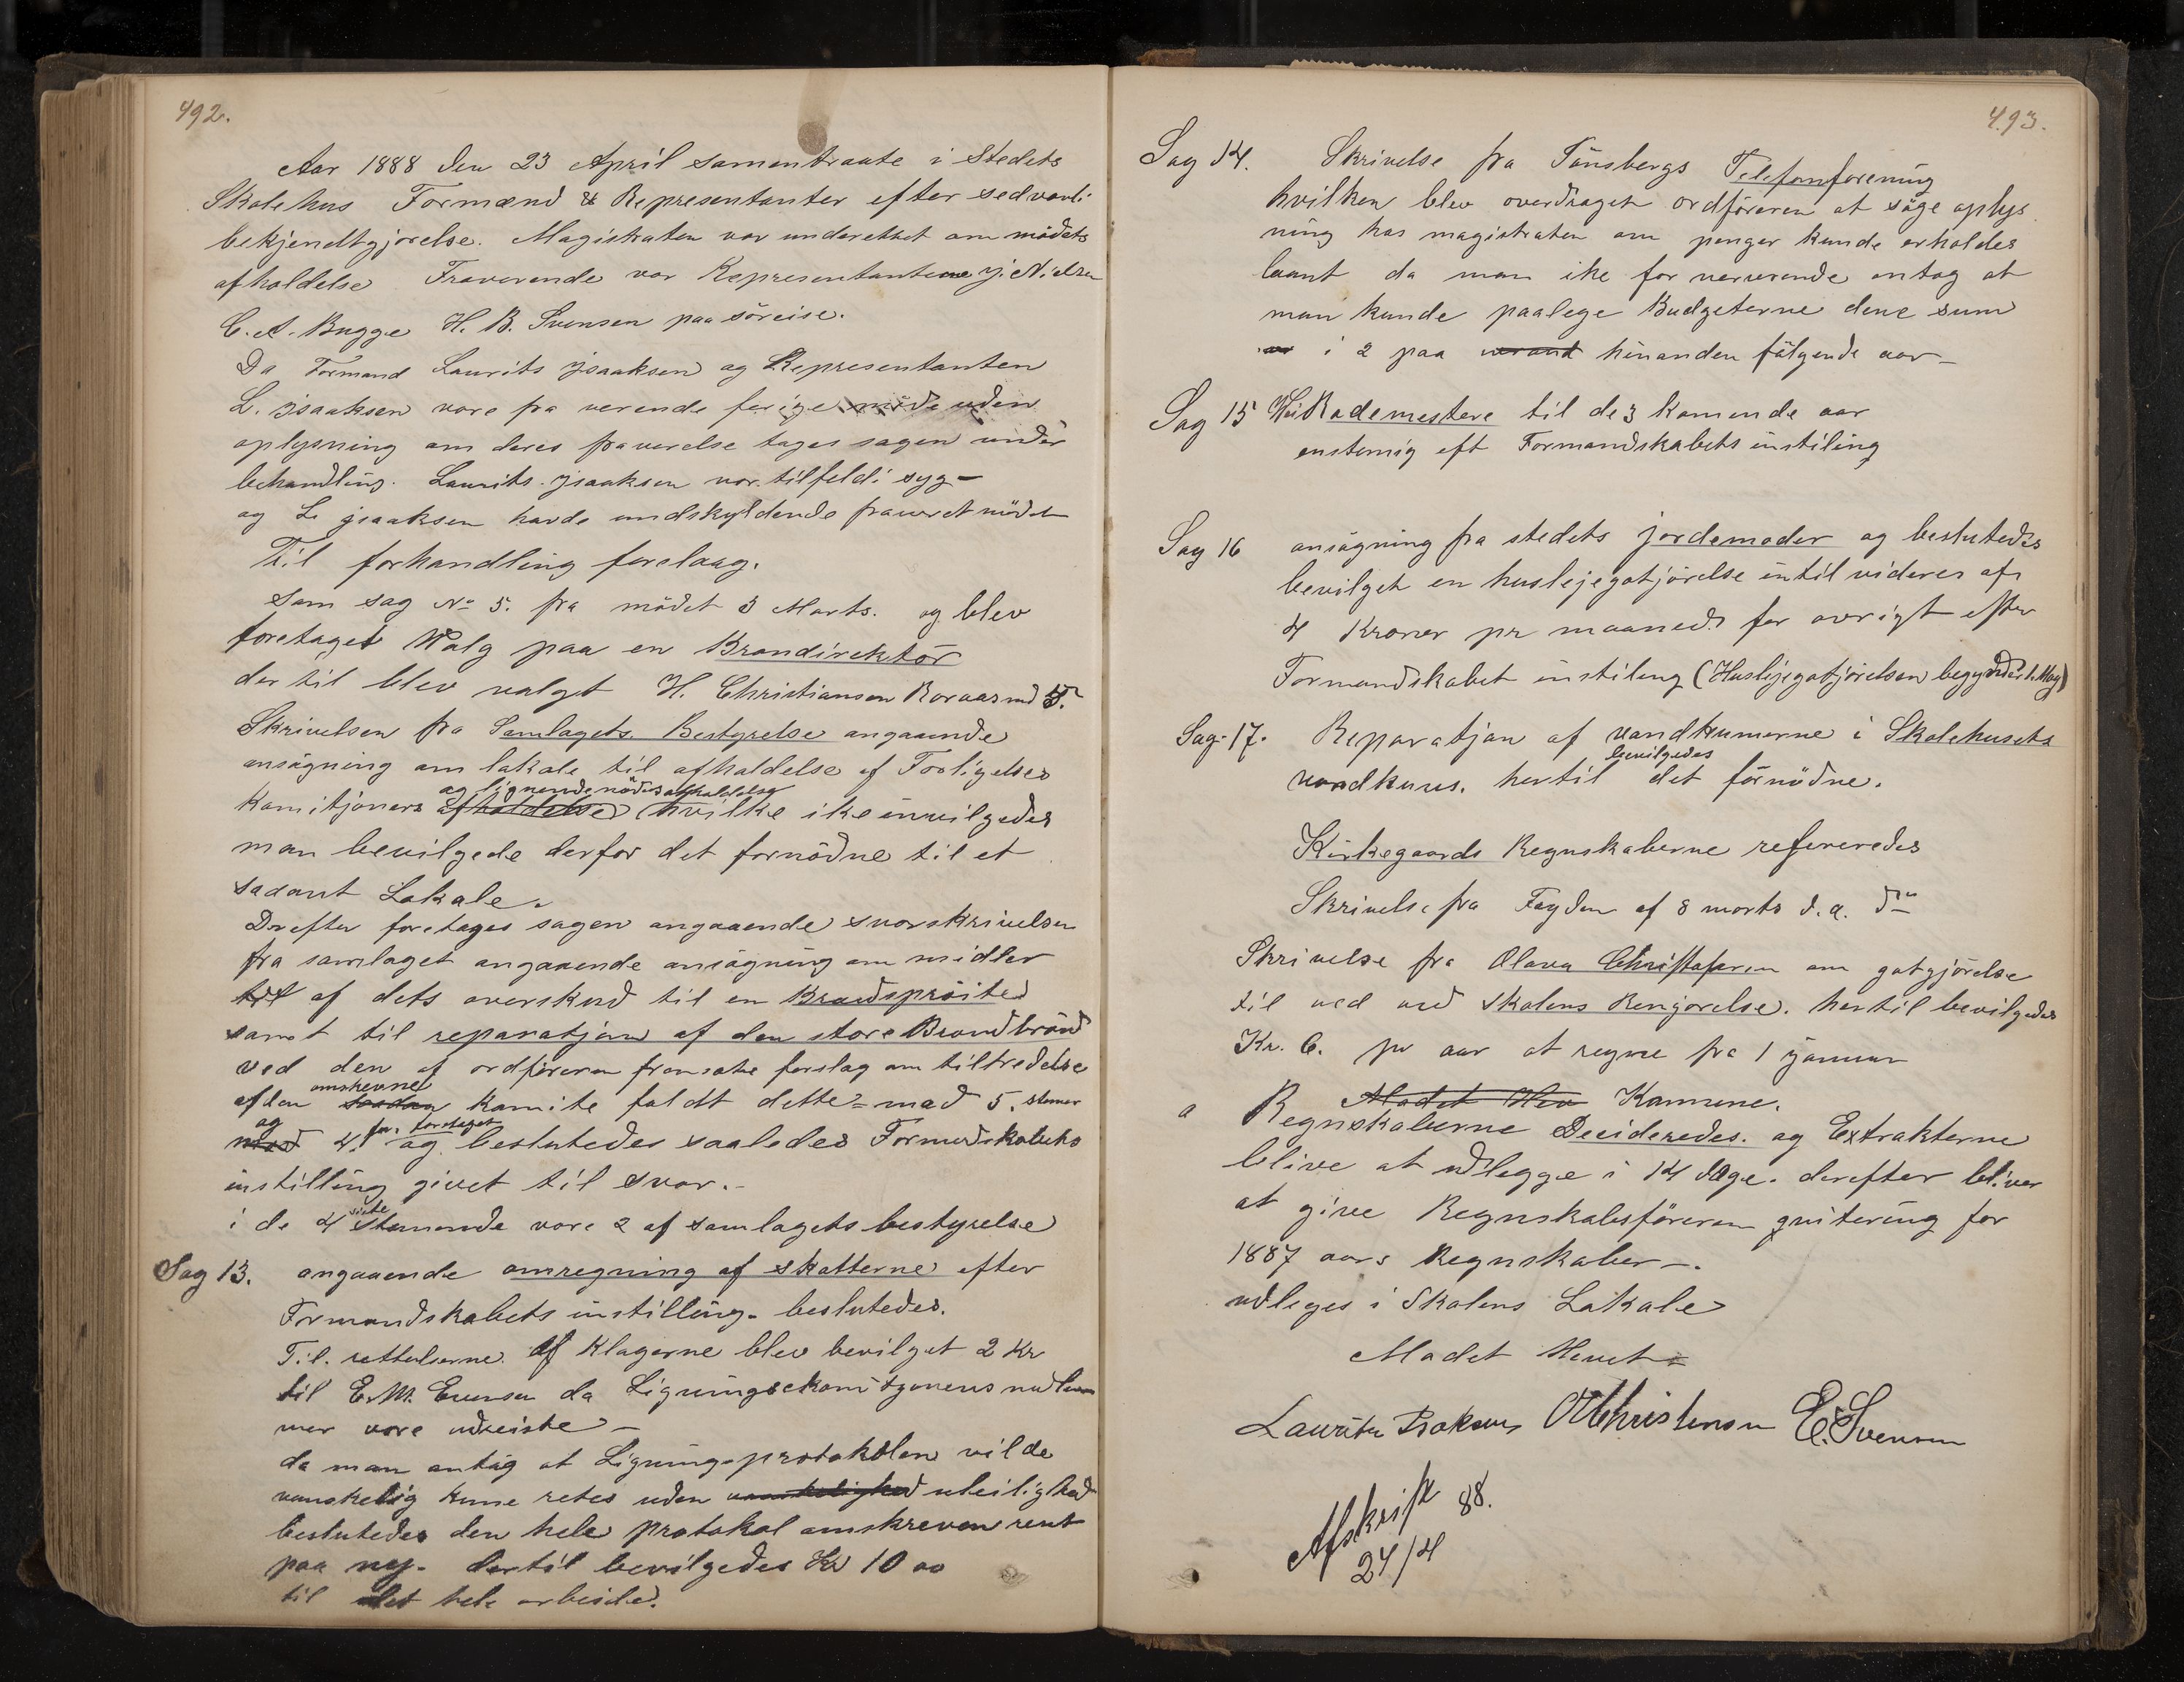 492.
Aar 1888 den 23 April samentraate i Stedets
Skolehus Formænd & Representanter efter sedvanli
bekjendtgjørelse. Magistraten var underettet om mödets
afholdelse Fraverende var Representanterne J. Nielsen
C. A. Bugge H. B. Svensen paa söreise.
Da Formand Laurits Isaaksen og Representanten
L. Isaaksen vare fra verende forige möde uden
oplysning om deres fraverelse toges sagen under
behandling. Laurits Isaaksen var tilfeldi syg -
og L. Isaaksen havde undskyldende fraveret mödet
Til forhandling forelaag.
Som sag No 5. fra mödet 3 Marts. og blev
foretaget Valg paa en Brandirektör
der til blev valgt H. Christiansen med 5.
Skrivelsen fra Samlagets Bestyrelse angaaende
ansögning om lokale til afholdelse af Forligelses
og lignende mödes afholdelse
Komitjoners afholdelse hvilke ike invilgedes
man bevilgede derfor det fornödne til et
sadant Lokale.
Derefter foretoges sagen angaaende svarskrivelsen
fra samlaget angaaende ansögning om midler
til af dets overskud til en Brandspröite
samt til reparatjon af den store Brandbrönd
ved den af ordföreren fremsatte forslag om tiltredelse
omskevne
af den saadan komite faldt dette = mod 5. stemer
og for forslaget
mod 4. og beslutedes saaledes Formandskabets
instilling givet til svar. -
siste
i de 4 stemende vare 2 af samlagets bestyrelse
Sag 13. angaaende omregning af skatterne efter
Formandskabets instilling. beslutedes.
Til. rettelserne af Klagerne blev bevilget 2 Kr
til E. M. Evensen da Ligningskomitjonens medlem
mer vare udreiste -
da man antog at Ligningsprotokolen vilde
vanskelig kune retes uden vanskelighed uleilighed
beslutedes den hele protokol omskreven rent
paa ny. dertil bevilgedes Kr 10 00
til det hele arbeide.
493.
Sag 14. Skrivelse fra Tönsbergs Telefonforening
hvilken blev overdraget ordföreren at söge oplys
ning hos magistraten om penger kunde erholdes
laant da man ike for nerverende antog at
man kunde paalege Budgeterne dene sum
i 2 paa verand hinanden fölgende aar -
Sag 15 Rademestere til de 3 komende aar
enstemig eft Formandskabets instiling
Sag 16 ansögning fra stedets jordemoder og beslutedes
bevilget en huslejegotjörelse intil videre af
4 Kroner pr maaned. for övrigt efter
Formandskabet instiling (Huslejegotjörelsen begynder 1. May)
Sag. 17. Reparatjon af vandkumerne i Skolehusets
bevilgedes
vandkum. hertil det förnödne.
Kirkegaards Regnskaberne refereredes
Skrivelse fra Fogden af 8 marts d. a. do
Skrivelse fra Olava Christofersen om gotgjörelse
til ved ved skolens Rengjörelse. hertil bevilgedes
Kr. 6. pr aar at regne fra 1 januar
Mödet Hev Komune.
a Regnskaberne Decideredes. og Extrakterne
blive at udlegge i 14 dage. derefter bliver
at give Regnskabsföreren qvitering for
1887 aars Regnskaber -.
udleges i Skolens Lokale
Mödet Hevet
Laurits Isaksen O Christensen E. Svensen
Afskrift
24/4 88.